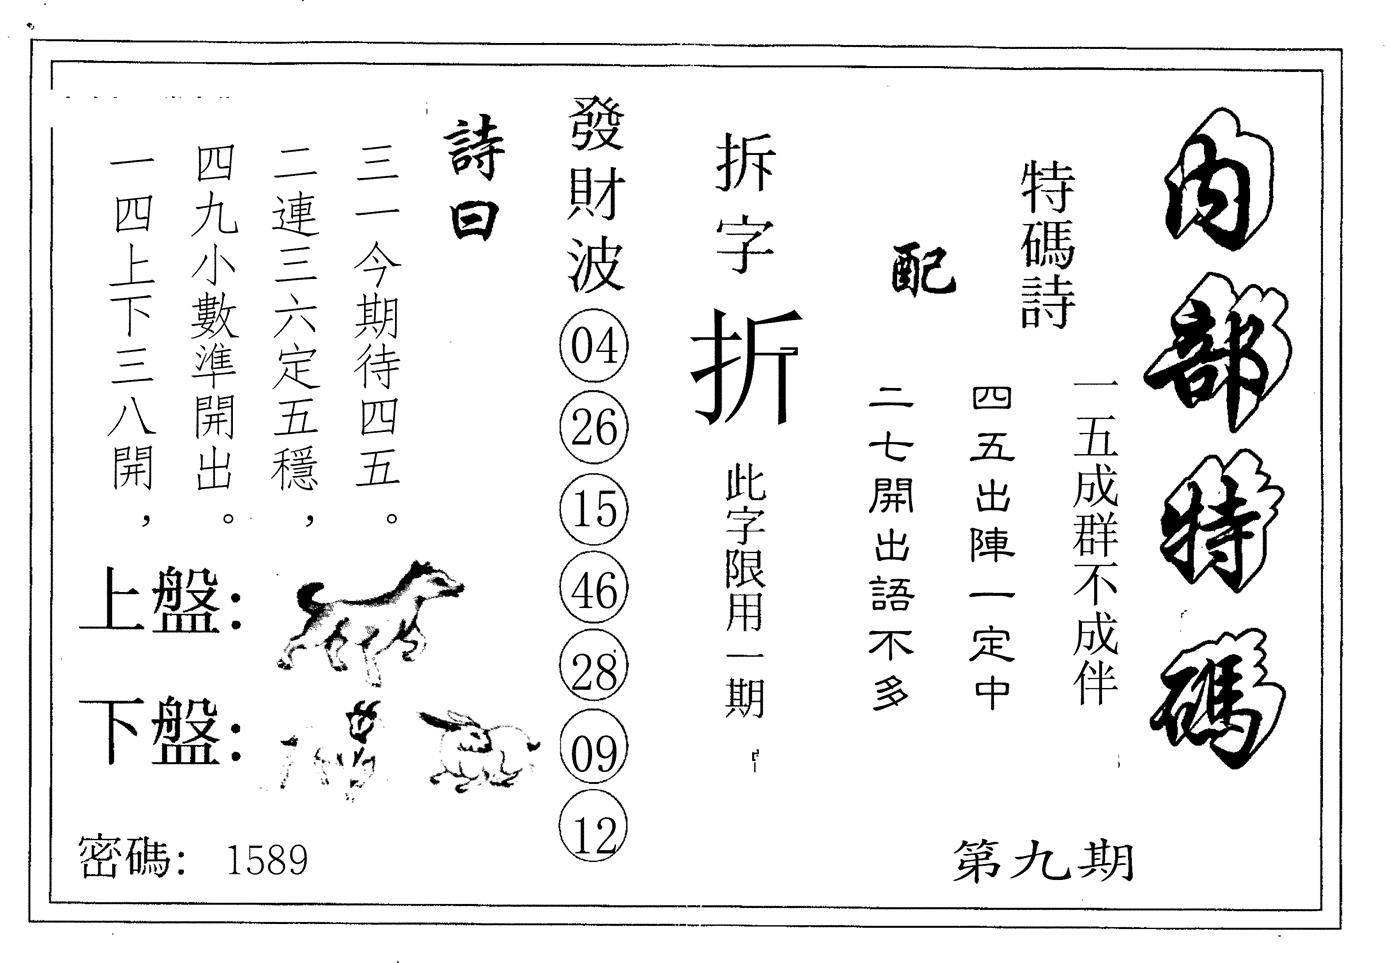 內部特碼
特碼詩
一五成群不成伴
四五出陣一定中
二七開出語不多
配
拆字
折
此字限用一期
發財波
04
26
15
46
28
09
12
詩曰
三一今期待四五。
二連三六定五穩，
四九小數準開出。
一四上下三八開，
上盤：
下盤：
密碼： 1589
第九期